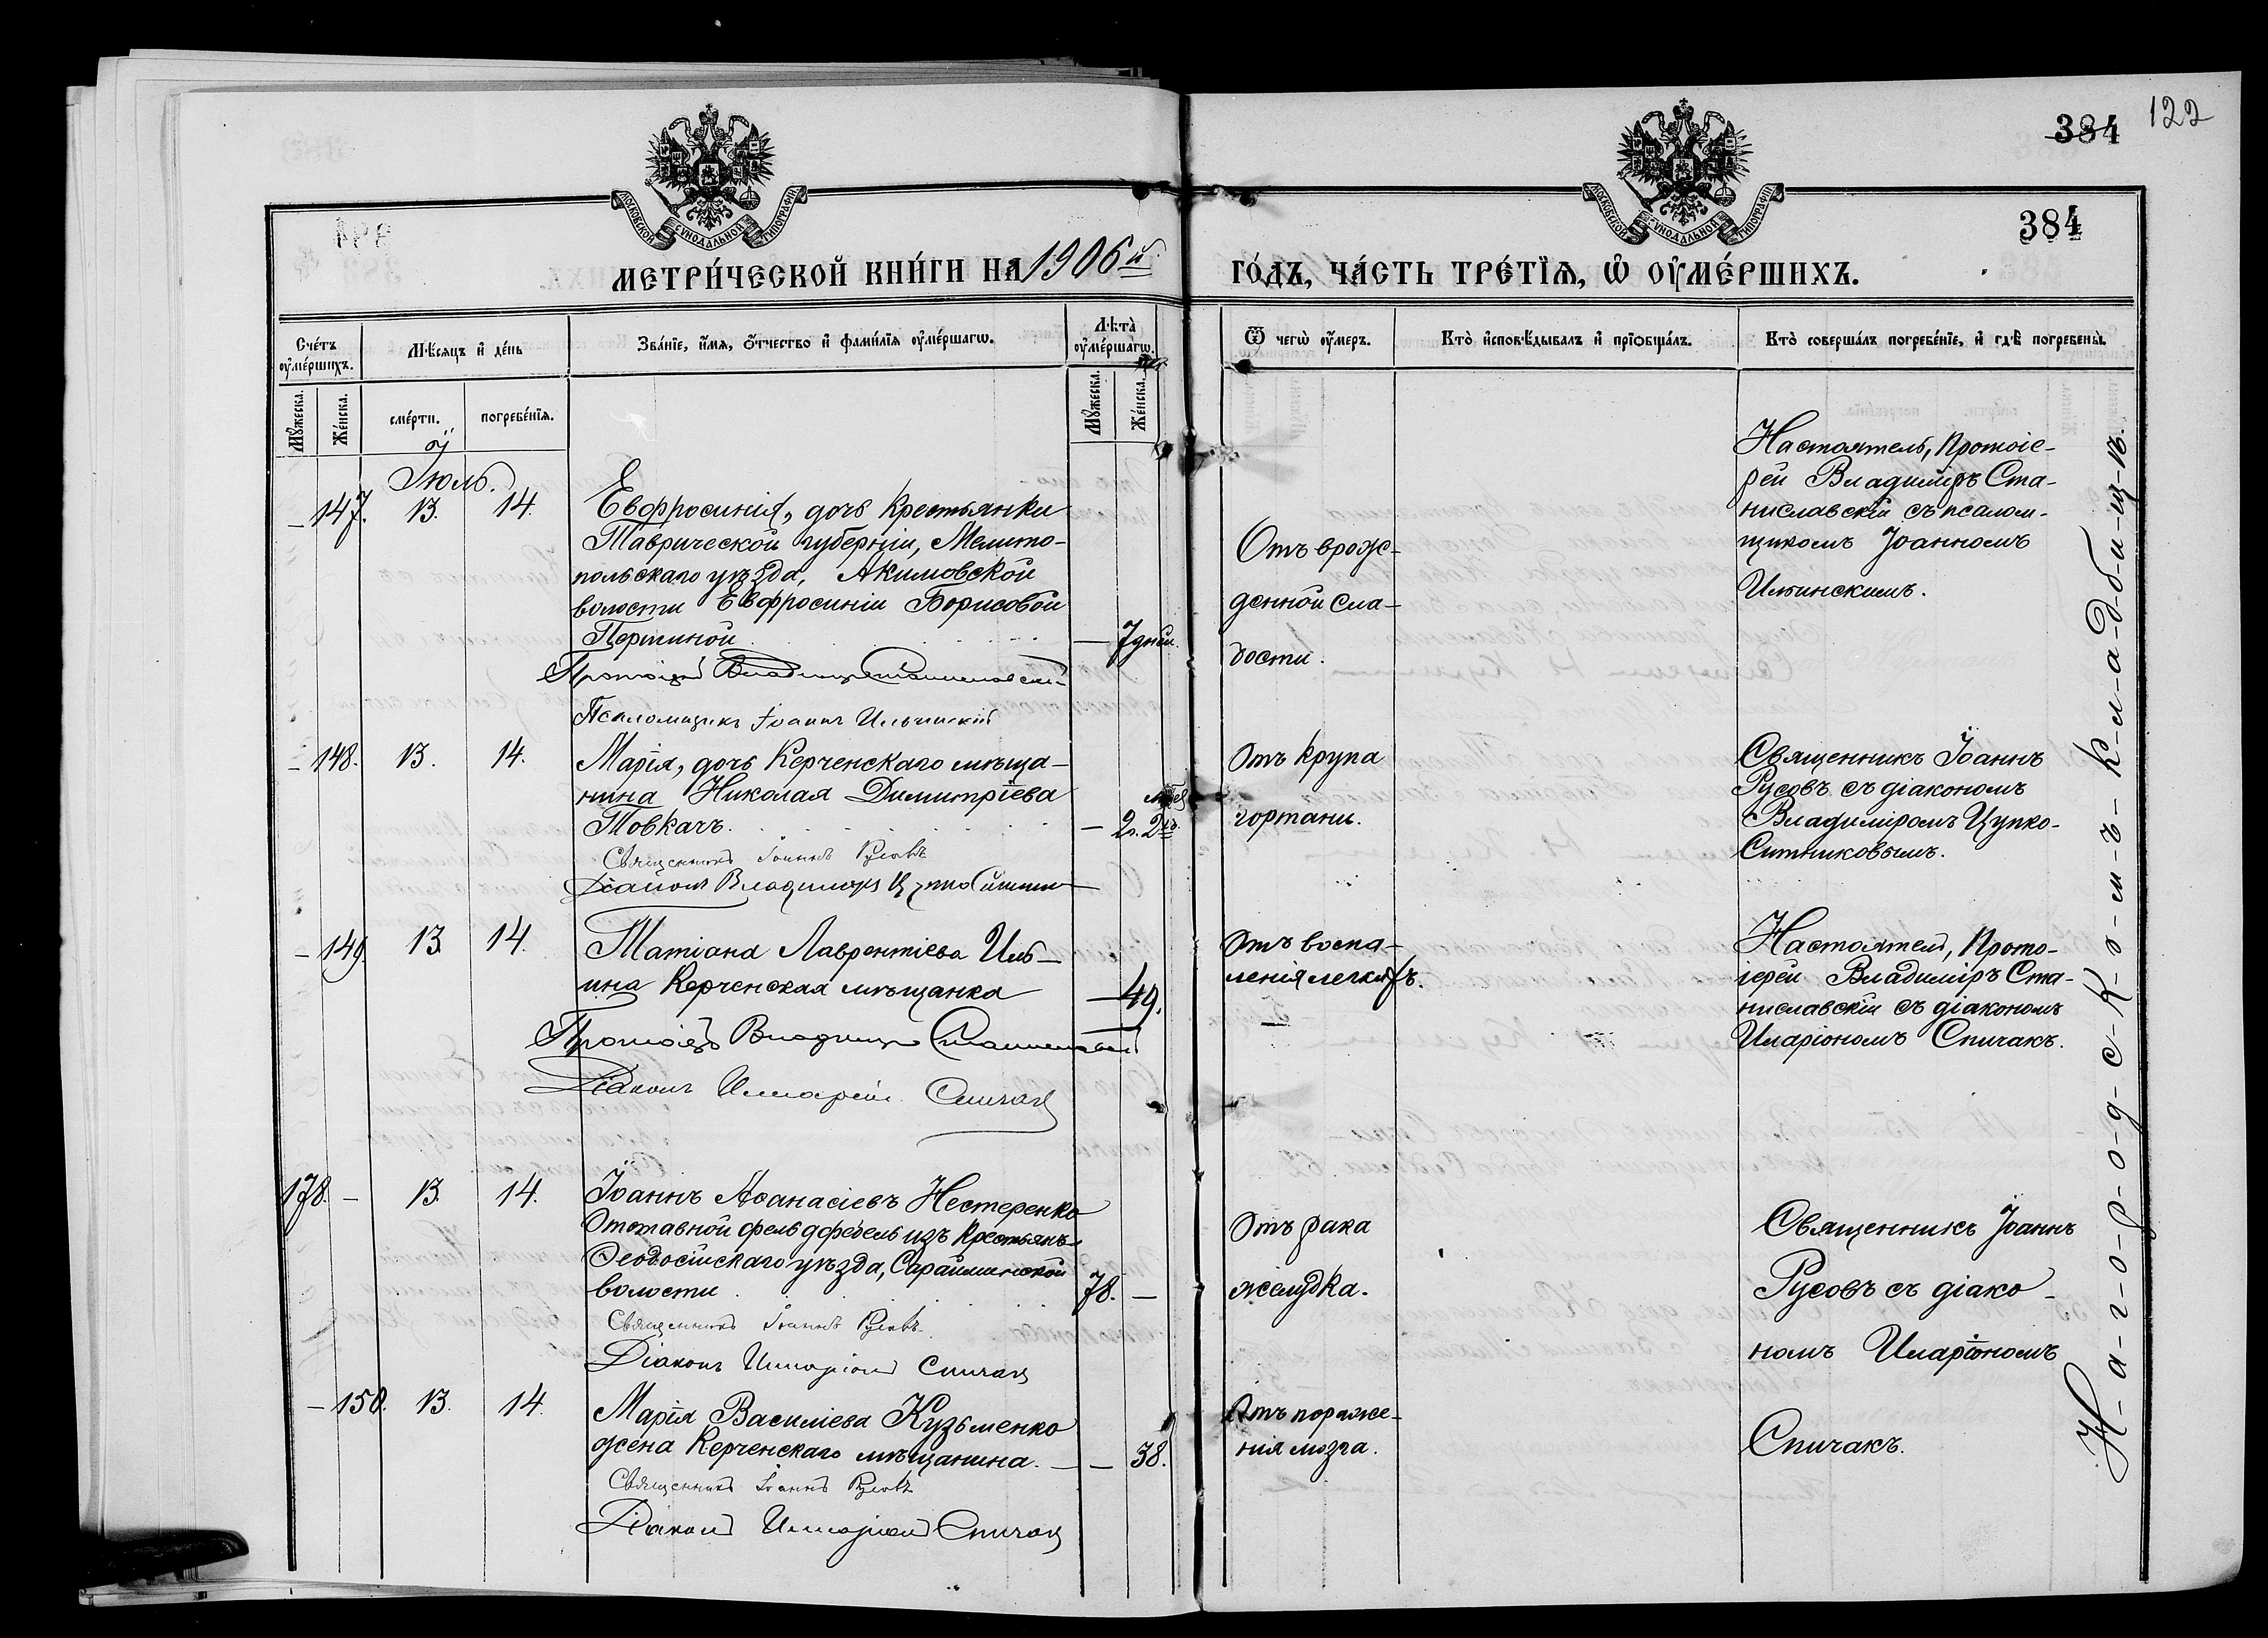 122
384
МОСКОВСКОЙ СѴНОДАЛЬНОЙ ТИПОГРАФІИ
МОСКОВСКОЙ СѴНОДАЛЬНОЙ ТИПОГРАФІИ
384
МЕТРИ́ЧЕСКОЙ КНИ́ГИ НА 1906й
ГО́ДЪ, ЧА́СТЬ ТРЕ́ТІѦ, Ѡ ОУМЕ́РШИХЪ.
Сче́тъ оумéршихъ.
Мѣ́сяцъ и де́нь
Зва́нїе, и́мѧ, о́тчество и фами́лїѧ оумéршагѡ.
Лѣта̀ оумéршагѡ.
Ѿ чегѡ̀ оу́меръ.
Кто̀ исповѣ́дывалъ и прїѡбща́лъ.
Кто̀ соверша́лъ погребе́нїе, и гдѣ̀ погребены̀.
Мꙋ́жеска.
Же́нска.
сме́рти.
погребе́нїѧ.
Мꙋ́жеска.
Же́нска.
Іюль.
— 147. 13. 14.
Евфросинія, дочь крестьянки
Таврической губерніи, Мелито-
польскаго уѣзда, Акимовской
волости Евфросиніи Борисовой
— 7 дней.
Протоіерей Владиміръ Станиславскій
Псаломщикъ Іоаннъ Ильинскій
Отъ врож-
денной сла-
бости.
Настоятель, Протоіе-
рей Владиміръ Ста-
ниславскій съ псалом-
щикомъ Іоанномъ
Ильинскимъ.
— 148. 13. 14.
Марія, дочь Керченскаго мѣща-
нина Николая Димитріева
Товкачъ.
— 2 г. 2
Священникъ Іоаннъ Русовъ
Діаконъ Владиміръ Цупко-Ситниковъ
Отъ крупа
гортани.
Священникъ Іоаннъ
Русовъ съ діакономъ
Владиміромъ Цупко-
Ситниковымъ.
— 149 13 14.
Татіана Лаврентіева Иль-
ина Керченская мѣщанка
— 49.
Протоіерей Владиміръ Станиславскій
Діаконъ Иларіонъ Спичакъ
Отъ воспа-
ленія легкихъ.
—
Настоятель, Прото-
іерей Владиміръ Ста-
ниславскій съ діакономъ
Иларіономъ Спичакъ.
178. — 13. 14.
Іоаннъ Аѳанасіевъ Нестеренко
Отставной фельдфебель изъ крестьянъ
Ѳеодосійскаго уѣзда, Сарайминской
волости
78. —
Священникъ Іоаннъ Русовъ
Діаконъ Иларіонъ Спичакъ
Отъ рака
желудка.
Священникъ Іоаннъ
Русовъ съ діако-
номъ Иларіономъ
Спичакъ.
— 150. 13. 14.
Марія Василіева Кузьменко
жена Керченскаго мѣщанина. —
— 38.
Священникъ Іоаннъ Русовъ
Діаконъ Иларіонъ Спичакъ
Отъ пораже-
нія мозга.
Н-а-г-о-р-о-д-с-к-о-м-ъ-к-л-а-д-б-и-щ-ѣ.